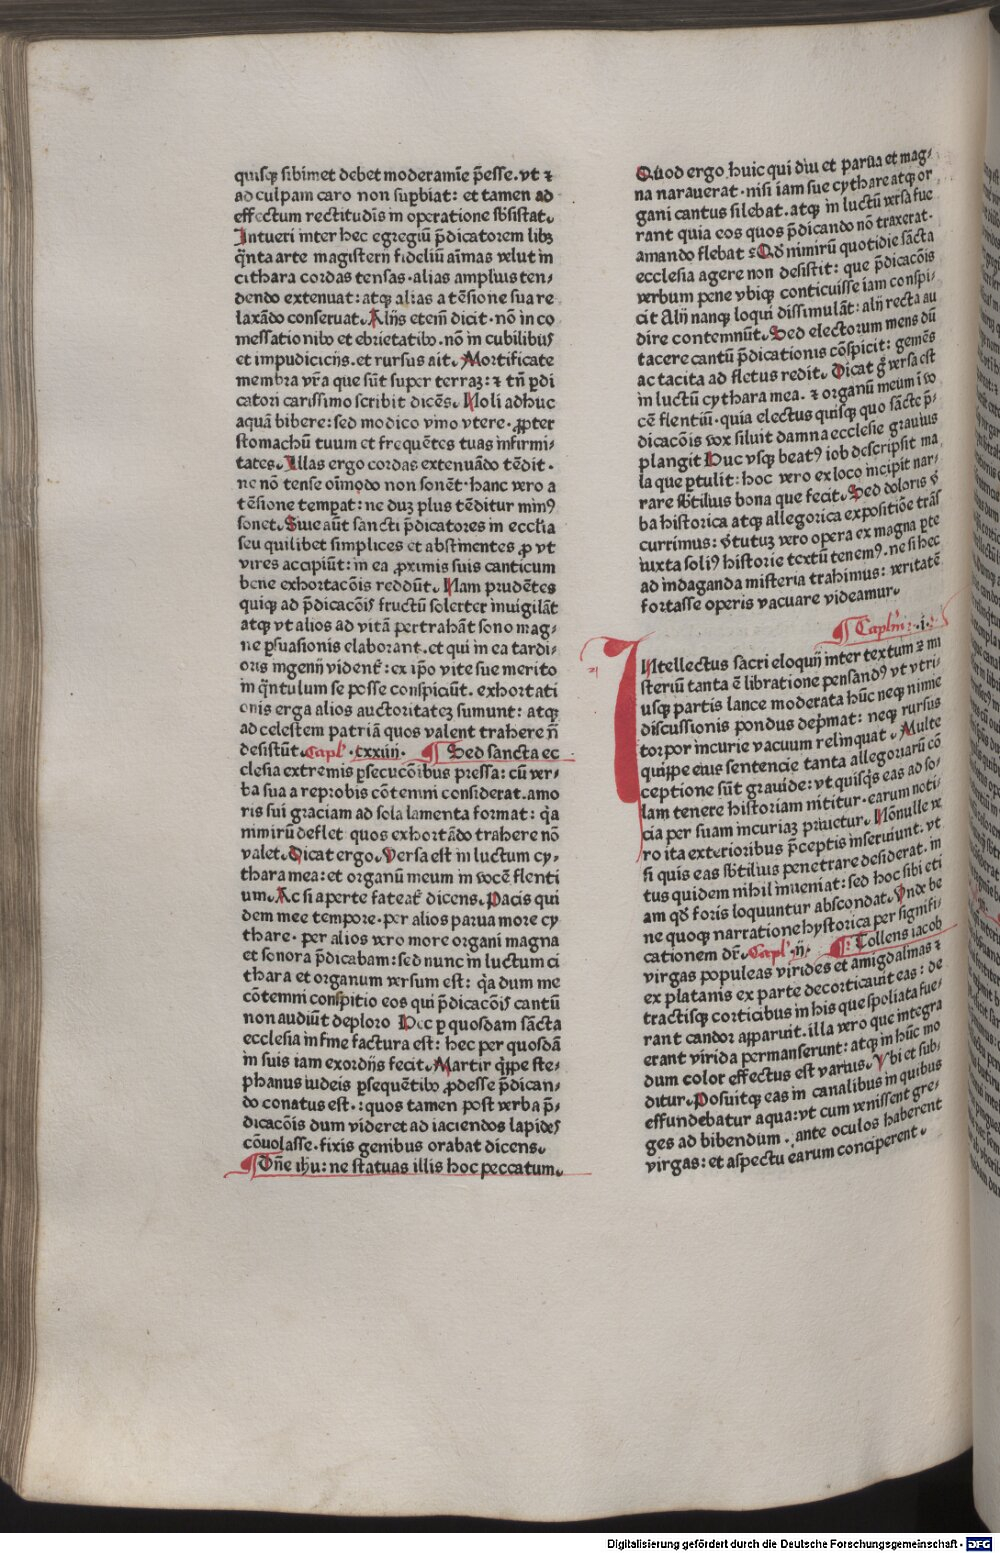 quisqʒ sibimet debet moderamīe p̄esse. vt ⁊
ad culpam caro non suꝑbiat: et tamen ad
effectum rectitudīs in operatione sb̄sistat.
Intueri inter hec egregiū p̄dicatorem libʒ
q̄nta arte magisterij fideliū aīmas velut in
cithara cordas tensas. alias amplius ten⸗
dendo extenuat: atqʒ alias a tēsione sua re
laxādo conseruat. Alijs etem̄ dicit. nō in co
messationibꝰ et ebrietatibꝰ. nō in cubilibus
et impudicicijs. et rursus ait. Mortificate
membra vr̄a que sūt super terraʒ: ⁊ tn̄ p̄di
catori carissimo scribit dicēs. Noli adhuc
aquā bibere: sed modico vino vtere. ꝓpter
stomachū tuum et frequētes tuas infirmi⸗
tates. Illas ergo cordas extenuādo tēdit.
ne nō tense oīmodo non sonēt. hanc vero a
tēsione temꝑat: ne duʒ plus tēditur minꝰ
sonet. Siue aūt sancti p̄dicatores in eccl̄ia
seu quilibet simplices et abstinentes ꝓ vt
vires accipiūt: in ea ꝓximis suis canticum
bene exhortacōis reddūt. Nam prudētes
quiqʒ ad p̄dicacōis fructū solerter inuigilāt
atqʒ vt alios ad vitā pertrahāt sono mag⸗
ne ꝑsuasionis elaborant. et qui in ea tardi⸗
oris ingenij vident̄: ex ip̄o vite sue merito
in q̄ntulum se posse conspiciūt. exhortati
onis erga alios auctoritateʒ sumunt: atqʒ
ad celestem patriā quos valent trahere n̄
desistūt. Capl̄. cxxiiij. ¶ Sed sancta ec
clesia extremis ꝑsecucōibus pressa: cū ver⸗
ba sua a reprobis cōtemni considerat. amo
ris sui graciam ad sola lamenta format: q̄a
nimirū deflet quos exhortādo trahere nō
valet. Dicat ergo. Versa est in luctum cy⸗
thara mea: et organū meum in vocē flenti
um. Ac si aperte fateat̄ dicens. Pacis qui
dem mee tempore. per alios parua more cy
thare. per alios vero more organi magna
et sonora p̄dicabam: sed nunc in luctum ci
thara et organum versum est: q̄a dum me
cōtemni conspitio eos qui p̄dicacōis cantū
non audiūt deploro Hec ꝑ quosdam sācta
ecclesia in fine factura est: hec per quosdā
in suis iam exordijs fecit. Martir q̄ippe ste⸗
phanus iudeis ꝑsequētibꝰ ꝓdesse p̄dican⸗
do conatus est.: quos tamen post verba p̄⸗
dicacōis dum videret ad iaciendos lapides
cōuolasse. fixis genibus orabat dicens.
¶ Dn̄e ih̄u: ne statuas illis hoc peccatum.
Quod ergo huic qui diu et parua et mag⸗
na narauerat. nisi iam sue cythare atqʒ or
gani cantus silebat. atqʒ in luctū versa fue
rant quia eos quos p̄dicando nō traxerat.
amando flebat: Qd̄ nimirū quotidie sācta
ecclesia agere non desistit: que p̄dicacōis
verbum pene vbiqʒ conticuisse iam conspi⸗
cit Alij nanqʒ loqui dissimulāt: alij recta au
dire contemnūt. Sed electorum mens dū
tacere cantū p̄dicationis cōspicit: gemēs
ac tacita ad fletus redit. Dicat g̊ versa est
in luctū cythara mea. ⁊ organū meum ī vo
cē flentiū. quia electus quisqʒ quo sācte p̄⸗
dicacōis vox siluit damna ecclesie grauius
plangit Huc vsqʒ beatꝰ iob descripsit ma
la que ꝑtulit: hoc vero ex loco incipit nar⸗
rare sb̄tilius bona que fecit. Sed doloris v̄
ba historica atqʒ allegorica expositiōe trās
currimus: v̄tutuʒ vero opera ex magna ꝑte
iuxta soliꝰ historie textū tenemꝰ. ne si hec
ad indaganda misteria trahimus: veritatē
fortasse operis vacuare videamur.
¶ Caplm̄. .i.
Intellectus sacri eloquij inter textum ⁊ mi
steriū tanta ē libratione pensandꝰ vt vtri⸗
usqʒ partis lance moderata hūc neqʒ nimie
discussionis pondus dep̄mat: neqʒ rursus
torpor incurie vacuum relinquat. Multe
quippe eius sentencie tanta allegoriarū cō
ceptione sūt grauide: vt quisq̄s eas ad so⸗
lam tenere historiam nititur. earum noti⸗
cia per suam incuriaʒ priuetur. Nōnulle ve
ro ita exterioribus p̄ceptis inseruiunt. vt
si quis eas sb̄tilius penetrare desiderat. in
tus quidem nihil inueniat: sed hoc sibi eti
am qd̄ foris loquuntur abscondat. Vnde be
ne quoqʒ narratione hystorica per signifi⸗
cationem dr̄. Capl̄. ij. ¶ Tollens iacob
virgas populeas virides et amigdalinas ⁊
ex platanis ex parte decorticauit eas: de
tractisqʒ corticibus in his que spoliata fue⸗
rant candor apparuit. illa vero que integra
erant virida permanserunt: atqʒ in hūc mo
dum color effectus est varius. Vbi et sub⸗
ditur. Posuitqʒ eas in canalibus in quibus
effundebatur aqua: vt cum venissent gre⸗
ges ad bibendum. ante oculos haberent
virgas: et aspectu earum conciperent.
Digitalisierung gefördert durch die Deutsche Forschungsgemeinschaft - DFG